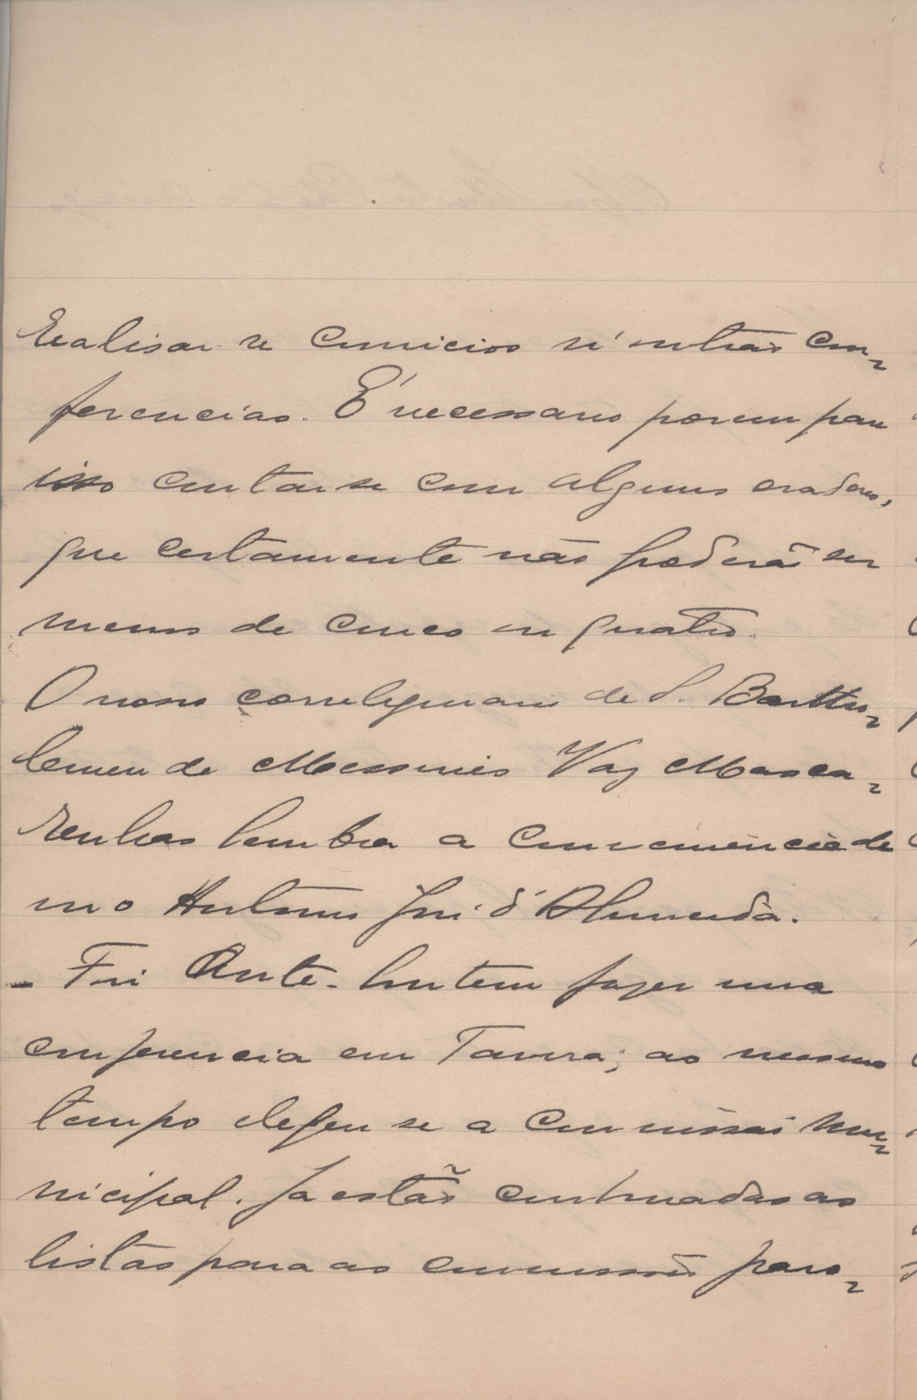 realisar-se comicios n'outras con-
ferencias. É necessario porem para
isso contar-se com alguns oradores,
que certamente não poderão ser
menos de cinco ou quatro.
O nosso correligionario de S. Bartho-
lomeu de Messines Vaz Masca-
renhas lembra a conveniencia de
o Antonio José d'Almeida.
- Fui Ante-hontem fazer uma
conferencia em Tavira; ao mesmo
tempo elegeu-se a Commissão Mu-
nicipal. Ja estão combinadas as
listas para as commissões paro-